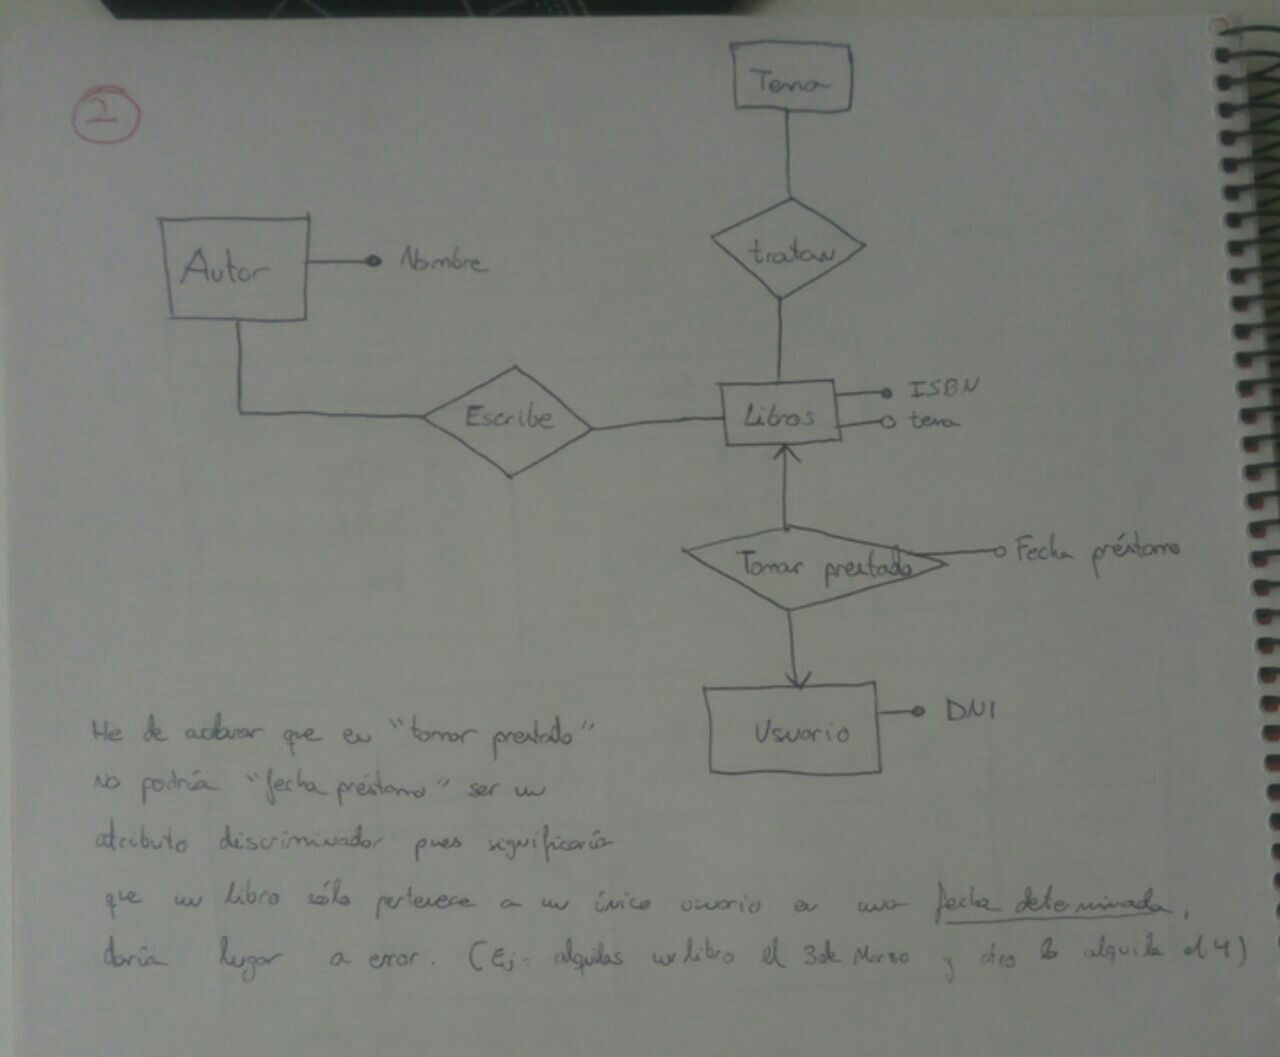 2
Tema
Autor
Nombre
tratan
Escribe
Libros
ISBN
tema
Tomar prestado
Fecha préstamo
Usuario
DNI
He de aclarar que en "tomar prestado"
no podría "fecha préstamo" ser un
atributo discriminador pues significaría
que un libro sólo pertenece a un único usuario en una fecha determinada,
daría lugar a error. (Ej: alquilas un libro el 3 de Marzo y otro lo alquila el 4)